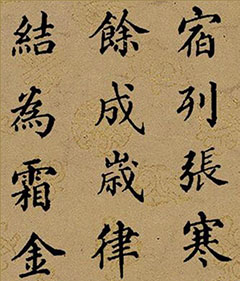 宿列張寒
餘成歲律
結為霜金